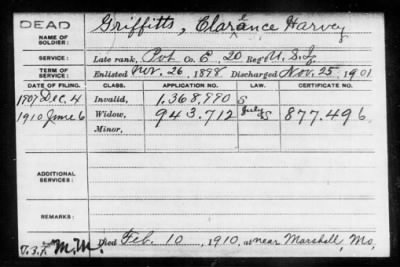 DEAD
NAME OF SOLDIER: Griffitts, Clarence Harvey
SERVICE: Late rank, Pvt Co. E, 20 Reg't U.S. Inf
TERM OF SERVICE: Enlisted Nov. 26, 1898 Discharged Nov. 25, 1901
DATE OF FILING. CLASS. APPLICATION NO. LAW. CERTIFICATE NO.
1907 Dec. 4 Invalid, 1,368,990 S
1910 June 6 Widow, 943.712 877.496
Minor,
ADDITIONAL SERVICES:
REMARKS:
Died Feb. 10, 1910, at near Marshall, Mo,